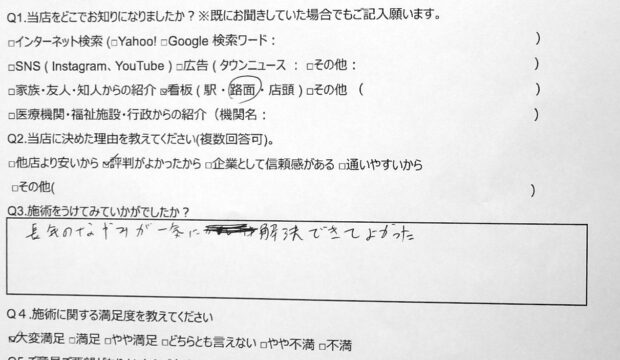 Q1.当店をどこでお知りになりましたか？※既にお聞きしていた場合でもご記入願います。
□インターネット検索（□Yahoo! □Google 検索ワード： ）
□SNS（Instagram、YouTube）□広告（タウンニュース ： □その他： ）
□家族・友人・知人からの紹介 ☑看板（駅・路面・店頭）□その他 （ ）
□医療機関・福祉施設・行政からの紹介（機関名： ）
Q2.当店に決めた理由を教えてください(複数回答可)。
□他店より安いから ☑評判がよかったから □企業として信頼感がある □通いやすいから
□その他( )
Q3.施術をうけてみていかがでしたか？
長気のなやみが一気に 解決できてよかった
Q４.施術に関する満足度を教えてください
☑大変満足 □満足 □やや満足 □どちらとも言えない □やや不満 □不満